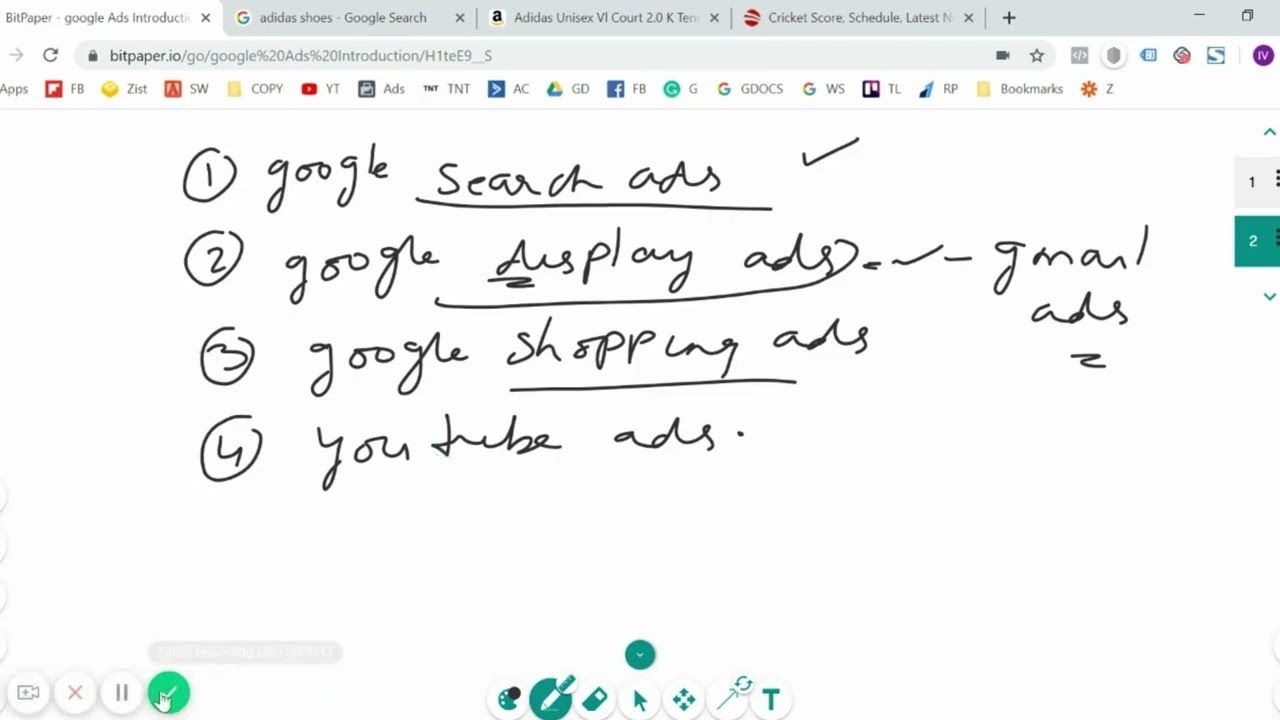 BitPaper - google Ads Introducti
adidas shoes - Google Search
Adidas Unisex Vl Court 2.0 K Ten
Cricket Score, Schedule, Latest N
bitpaper.io/go/google%20Ads%20Introduction/H1teE9__S
IV
Apps FB Zist SW COPY YT Ads TNT TNT AC GD FB G GDOCS WS TL RP Bookmarks Z
1 google search ads
2 google display ads. - gmail
ads
3 google shopping ads
4 youtube ads.
1
2
T